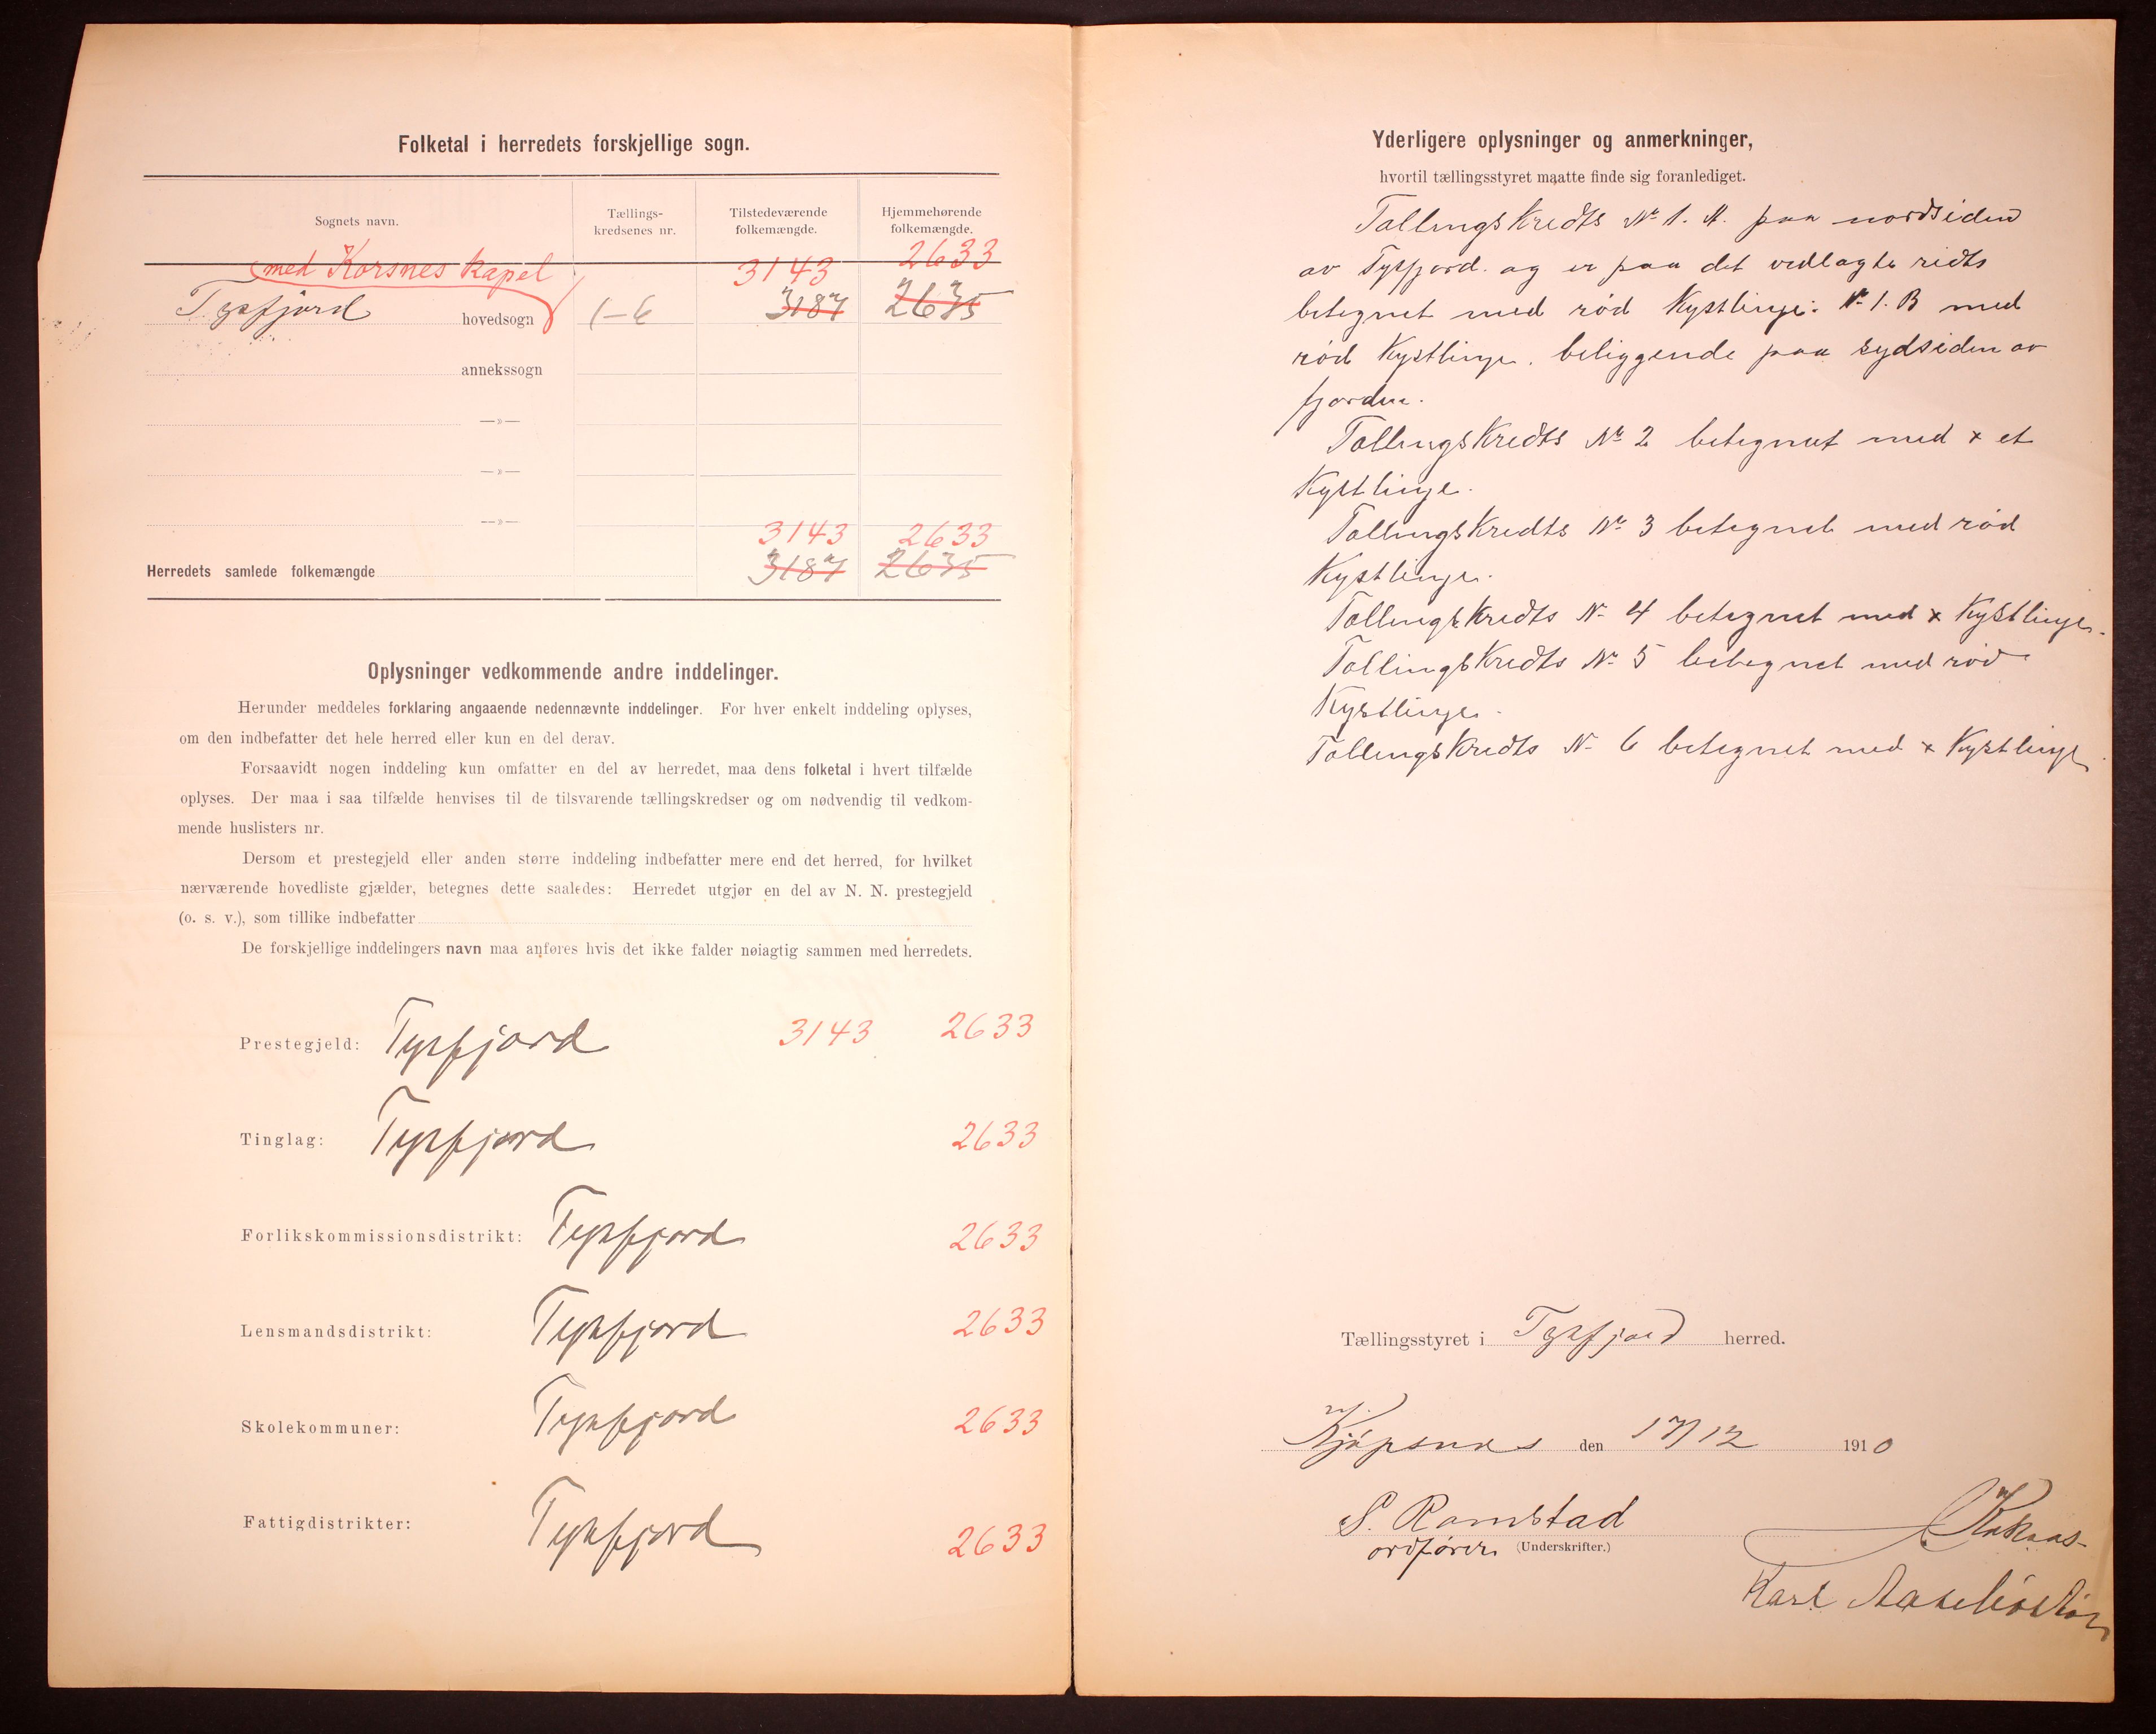 Folketal i herredets forskjellige sogn.
Sognets navn.
Tællings-
kredsenes nr.
Tilstedeværende
folkemængde.
Hjemmehørende
folkemængde.
(med Korsnes kapel 3143 2633
Tysfjord hovedsogn 1-6 3187 2635
annekssogn
—»—
—»—
—»—
3143 2633
Herredets samlede folkemængde 3187 2635
Oplysninger vedkommende andre inddelinger.
Herunder meddeles forklaring angaaende nedennævnte inddelinger. For hver enkelt inddeling oplyses,
om den indbefatter det hele herred eller kun en del derav.
Forsaavidt nogen inddeling kun omfatter en del av herredet, maa dens folketal i hvert tilfælde
oplyses. Der maa i saa tilfælde henvises til de tilsvarende tællingskredser og om nødvendig til vedkom-
mende huslisters nr.
Dersom et prestegjeld eller anden større inddeling indbefatter mere end det herred, for hvilket
nærværende hovedliste gjælder, betegnes dette saaledes: Herredet utgjør en del av N. N. prestegjeld
(o. s. v.), som tillike indbefatter
De forskjellige inddelingers navn maa anføres hvis det ikke falder nøiagtig sammen med herredets.
Prestegjeld: Tysfjord 3143 2633
Tinglag: Tysfjord 2633
Forlikskommissionsdistrikt: Tysfjord 2633
Lensmandsdistrikt: Tysfjord 2633
Skolekommuner: Tysfjord 2633
Fattigdistrikter: Tysfjord 2633
Yderligere oplysninger og anmerkninger,
hvortil tællingsstyret maatte finde sig foranlediget.
Tællingskredts No 1. A. paa nordsiden
av Tysfjord. og er paa det vedlagte ridts
betegnet med rød Kystlinje: No 1. B med
rød Kystlinje. beliggende paa sydsiden av
fjorden.
Tællingskredts No 2 betegnet med x et
Kystlinje.
Tællingskredts No 3 betegnet med rød
Kystlinje.
Tællingskredts No 4 betegnet med x Kystlinje.
Tællingskredts No 5 betegnet med rød
Kystlinje.
Tællingskredts No 6 betegnet med x Kystlinje.
Tællingsstyret i Tysfjord herred.
Kjøpsnes den 17/12 1910
S. Ramstad
ordfører (Underskrifter.)
Karl